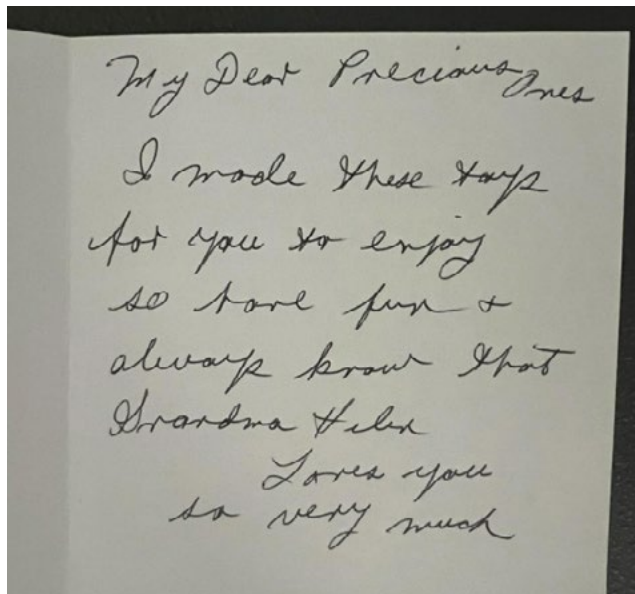 My Dear Precious Ones
I made these toys
for you to enjoy
so have fun &
always know that
Grandma Helen
Loves you
so very much